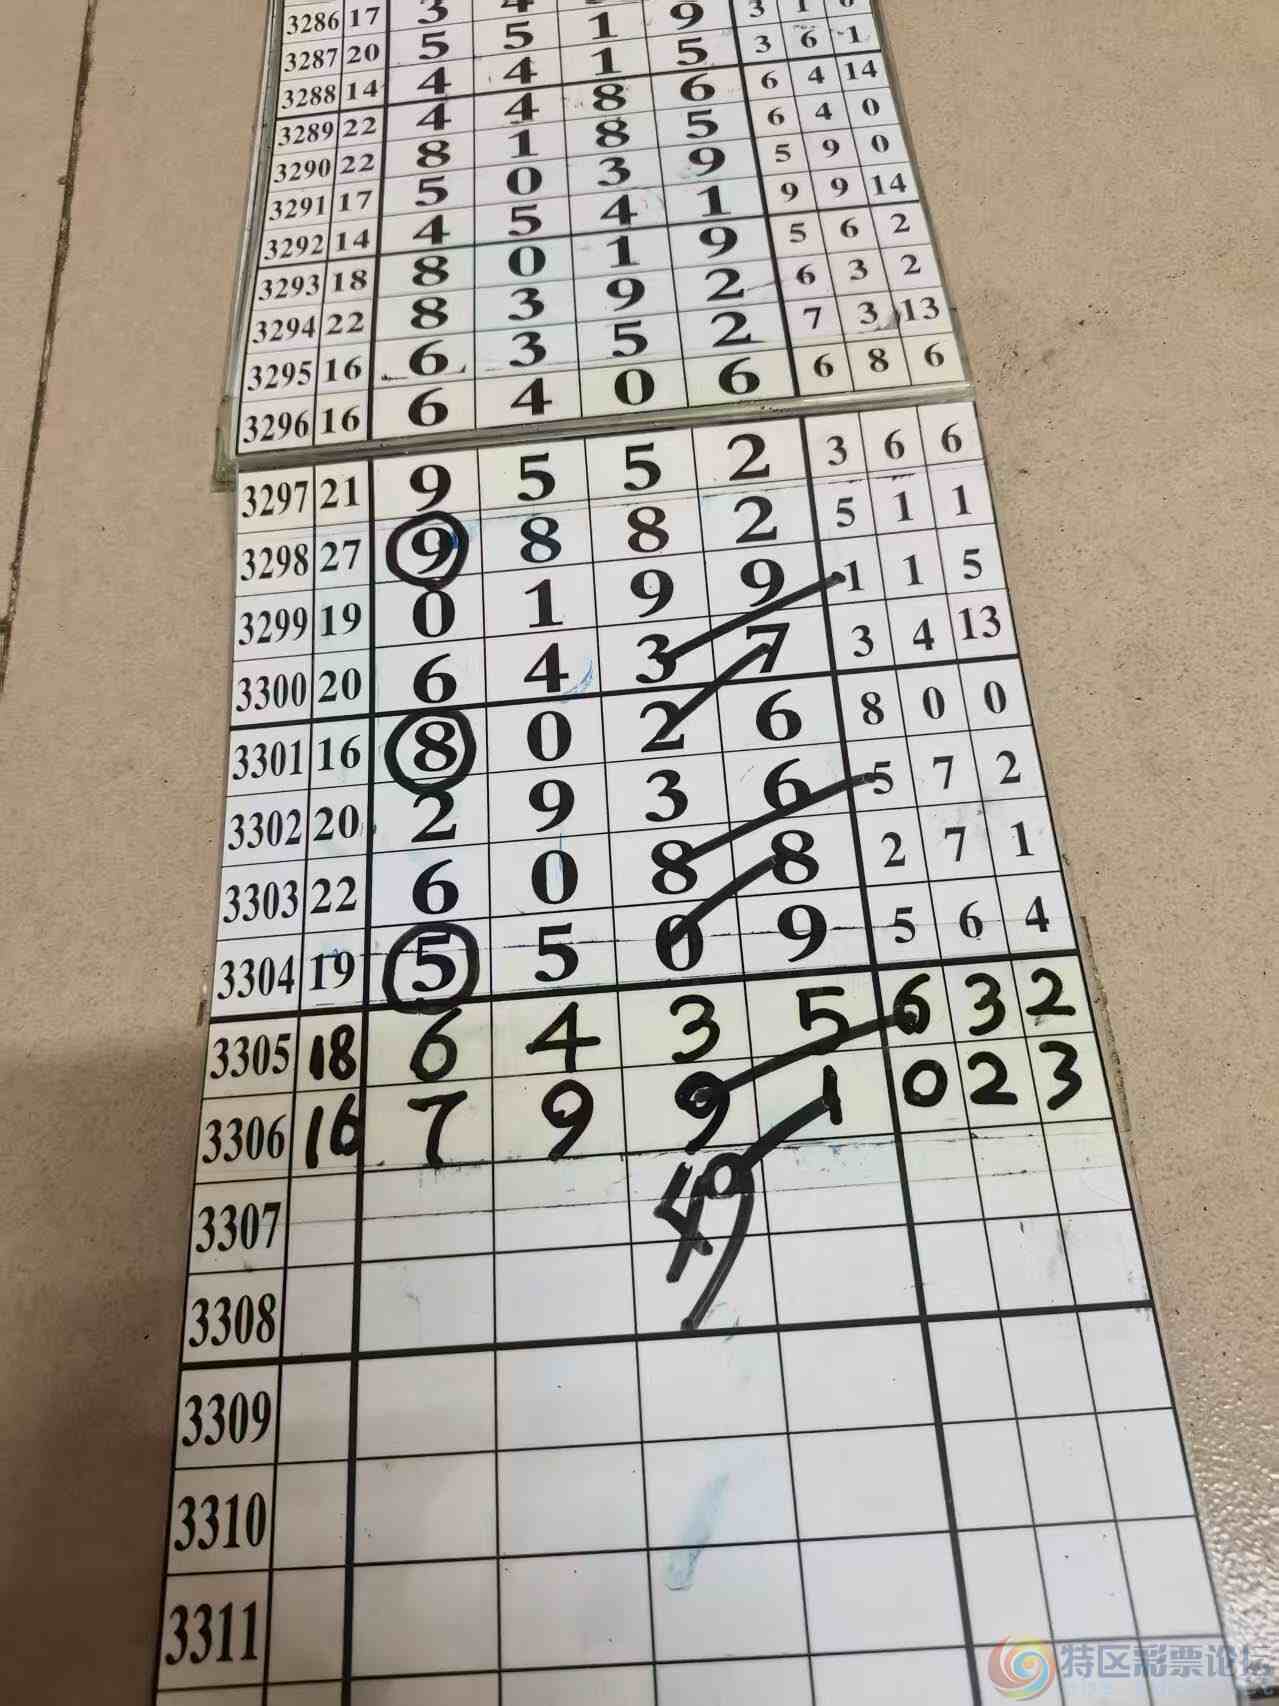 3286 17 3 4 9 3 1 0
3287 20 5 5 1 9 3 6 1
3288 14 4 4 1 5 6 4 14
3289 22 4 4 8 6 6 4 0
3290 22 8 1 8 5 5 9 0
3291 17 5 0 3 9 9 9 14
3292 14 4 5 4 1 5 6 2
3293 18 8 0 1 9 6 3 2
3294 22 8 3 9 2 7 3 13
3295 16 6 3 5 2 6 8 6
3296 16 6 4 0 6
3297 21 9 5 5 2 3 6 6
3298 27 9 8 8 2 5 1 1
3299 19 0 1 9 9 1 1 5
3300 20 6 4 3 7 3 4 13
3301 16 8 0 2 6 8 0 0
3302 20 2 9 3 6 5 7 2
3303 22 6 0 8 8 2 7 1
3304 19 5 5 0 9 5 6 4
3305 18 6 4 3 5 6 3 2
3306 16 7 9 9 1 0 2 3
3307 49
3308
3309
3310
3311
特区彩票论坛